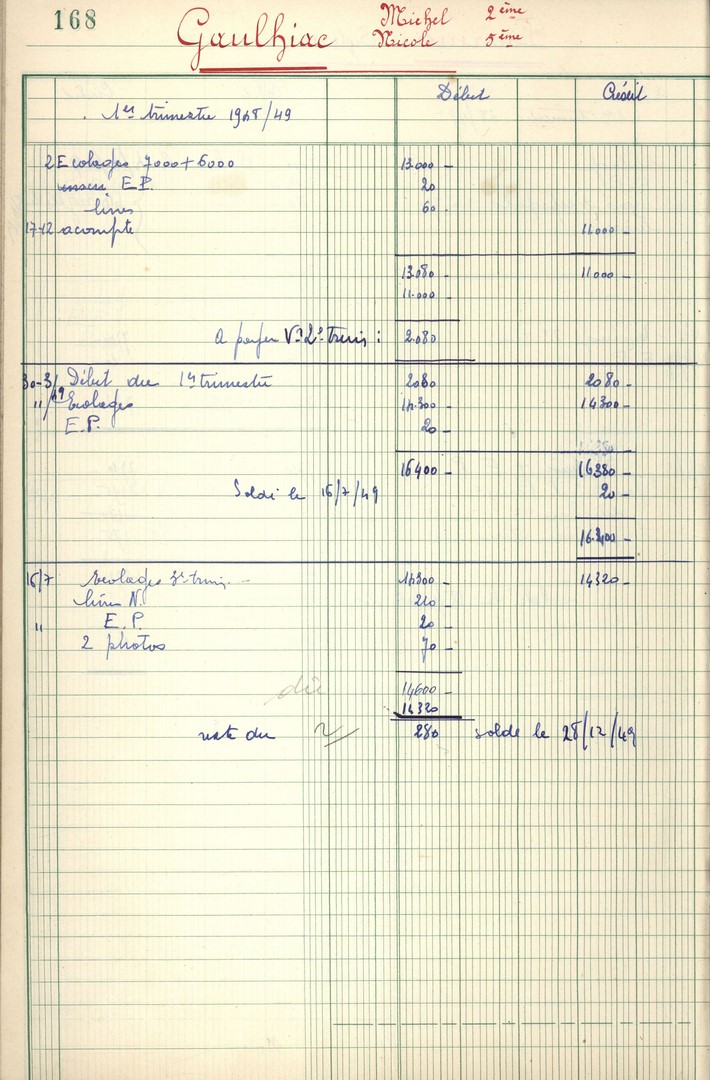 168 Gaulhiac Michel 2ème
Nicole 5ème
Début Crédit
1er trimestre 1948/49
2 Ecolages 7000+6000 13.000 -
E.P. 20
livres 60
17-12 acompte 11.000 -
13.080 - 11.000 -
11.000 -
A payer 2e trim : 2.080
30-3/49 Début du 1er trimestre 2080 - 2080 -
" Ecolages 14.300 - 14300 -
E.P. 20 -
16400 - 16380 -
Soldé le 16/7/49 20 -
16.400 -
16/7 Ecolages 3e trim. - 14300 - 14320 -
livre N. 210 -
" E.P. 20 -
2 photos 70 -
dû 14600 -
14320
reste du 280 solde le 28/12/49